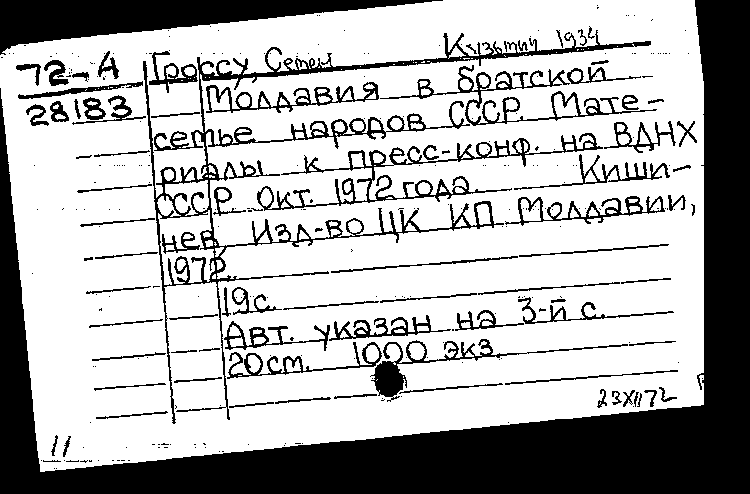 72-А Гроссу, Семен Кузьмич 1934
28183 Молдавия в братской
семье народов СССР. Мате-
риалы к пресс-конф. на ВДНХ
СССР. Окт. 1972 года. Киши-
нев, Изд-во ЦК КП Молдавии,
1972.
19 с.
Авт. указан на 3-й с.
20 см. 1000 экз.
23XII72
11